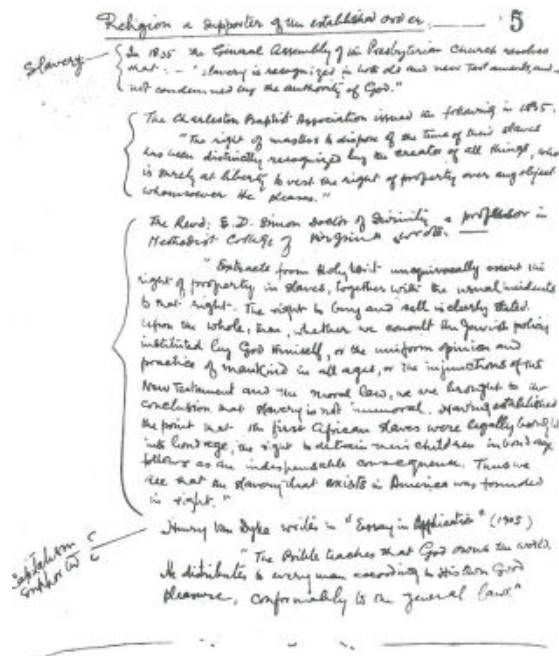 Religion a supporter of the established order. 5
Slavery
In 1835 the General Assembly of the Presbyterian Church resolved
that: - "Slavery is recognized in both old and new Testaments, and
not condemned by the authority of God."
The Charleston Baptist Association issued the following in 1835.
"The right of masters to dispose of the time of their slaves
has been distinctly recognized by the creator of all things, who
is surely at liberty to vest the right of property over any object
whomsoever He pleases."
The Revd. E.D. Simon Doctor of Divinity a professor in
Methodist College of Virginia wrote.
"Extracts from Holy Writ unequivocally assert the
right of property in slaves, together with the usual incidents
to that right. The right to buy and sell is clearly stated.
Upon the whole, then, whether we consult the Jewish policy
instituted by God Himself, or the uniform opinion and
practice of mankind in all ages, or the injunctions of the
New Testament and the moral law, we are brought to the
conclusion that slavery is not immoral. Having established
the point that the first African slaves were legally brought
into bondage, the right to detain their children in bondage
follows as an indispensable consequence. Thus we
see that the slavery that exists in America was founded
in right."
Capitalism
Henry Van Dyke writes in "Essay in Application" (1905)
"The Bible teaches that God owns the world.
He distributes to every man according to His own Good
pleasure, conformably to the general laws."